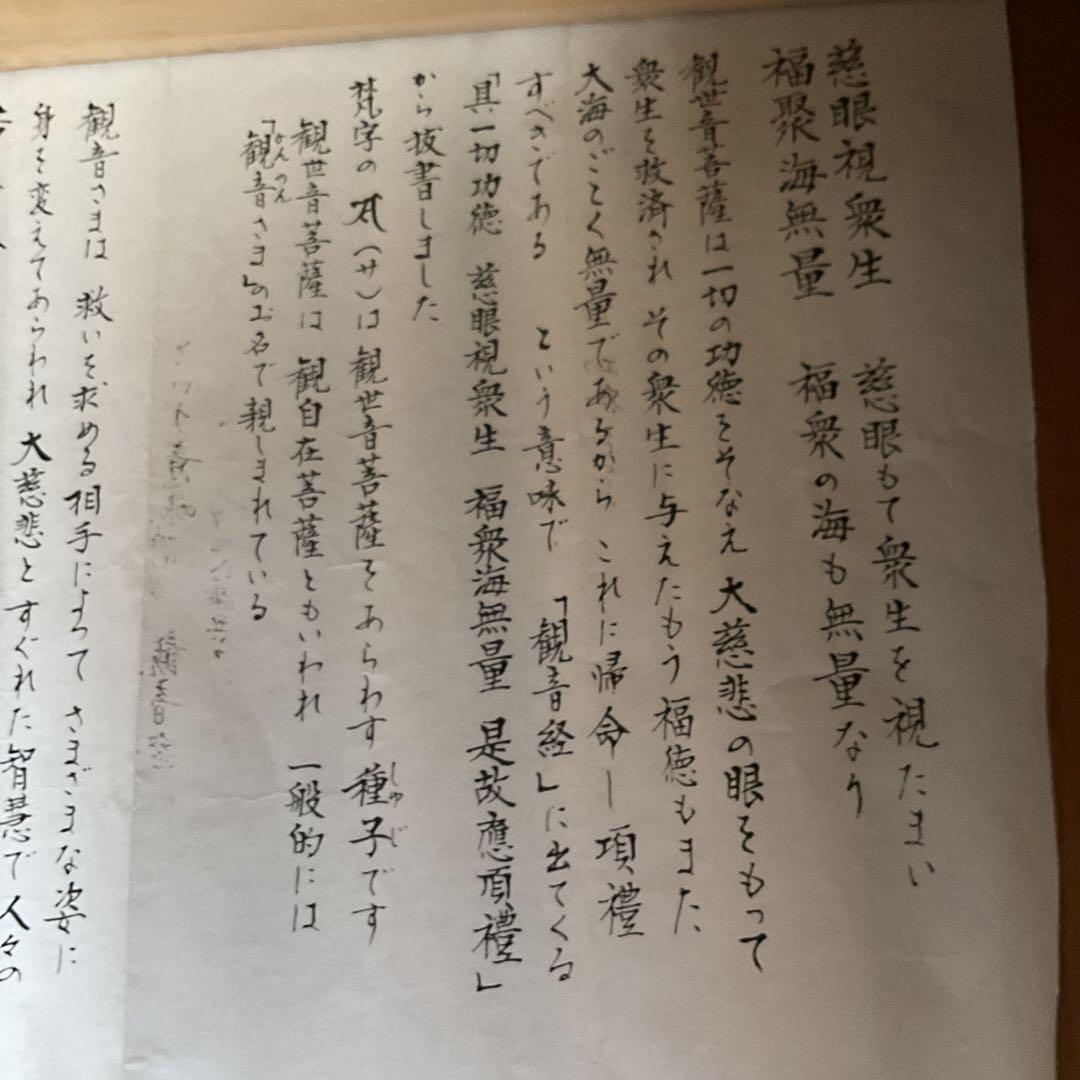 慈眼視衆生 慈眼もて衆生を視たまい
福聚海無量 福衆の海も無量なり
観世音菩薩は一切の功徳をそなえ 大慈悲の眼をもって
衆生を救済され その衆生に与えたもう 福徳もまた
大海のごとく無量であるから これに帰命し 項禮
すべきである という意味で 「観音経」に出てくる
「具一切功徳 慈眼視衆生 福衆海無量 是故應頂禮」
から抜書しました
梵字の (サ)は 観世音菩薩をあらわす 種子です
しゅじ
観世音菩薩は 観自在菩薩ともいわれ 一般的には
「観音さま」のお名で親しまれている
かんのん
観音さまは 救いを求める相手によって さまざまな姿に
身を変えてあらわれ 大慈悲とすぐれた智慧で 人々の